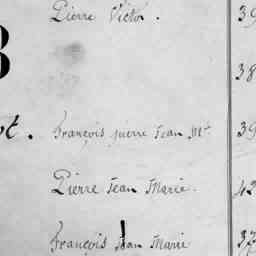 Pierre Victor. 39
B 38
ot. François pierre Jean Mie 39
Pierre Jean Marie. 42
François Jean Marie 37